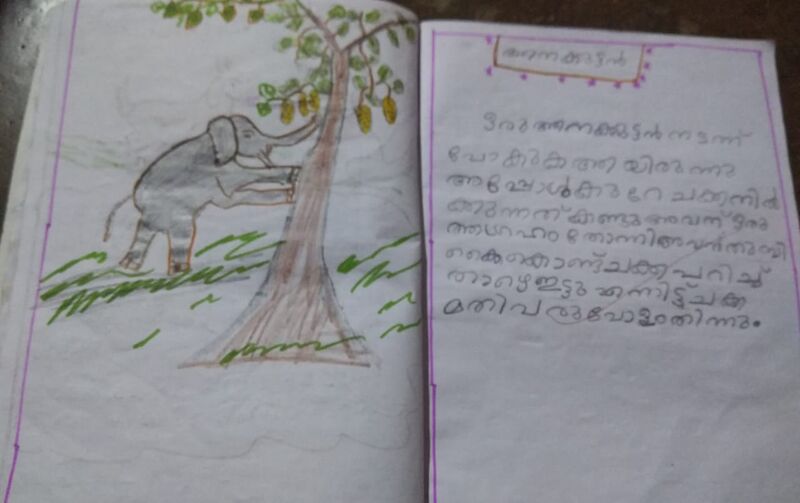 ആനകുട്ടൻ
ഒരു ആനക്കുട്ടൻ നടന്ന്
പോകുക ആയിരുന്നു
അപ്പോൾ കുറേ ചക്ക നിൽ
ക്കുന്നത് കണ്ടു അവന് ഒരു
ആഗ്രഹം തോന്നി അവൻ തുമ്പി
കൈകൊണ്ട് ചക്ക പറിച്ച്
താഴെ ഇട്ടു എന്നിട്ട് ചക്ക
മതിവരുവോളം തിന്നു.